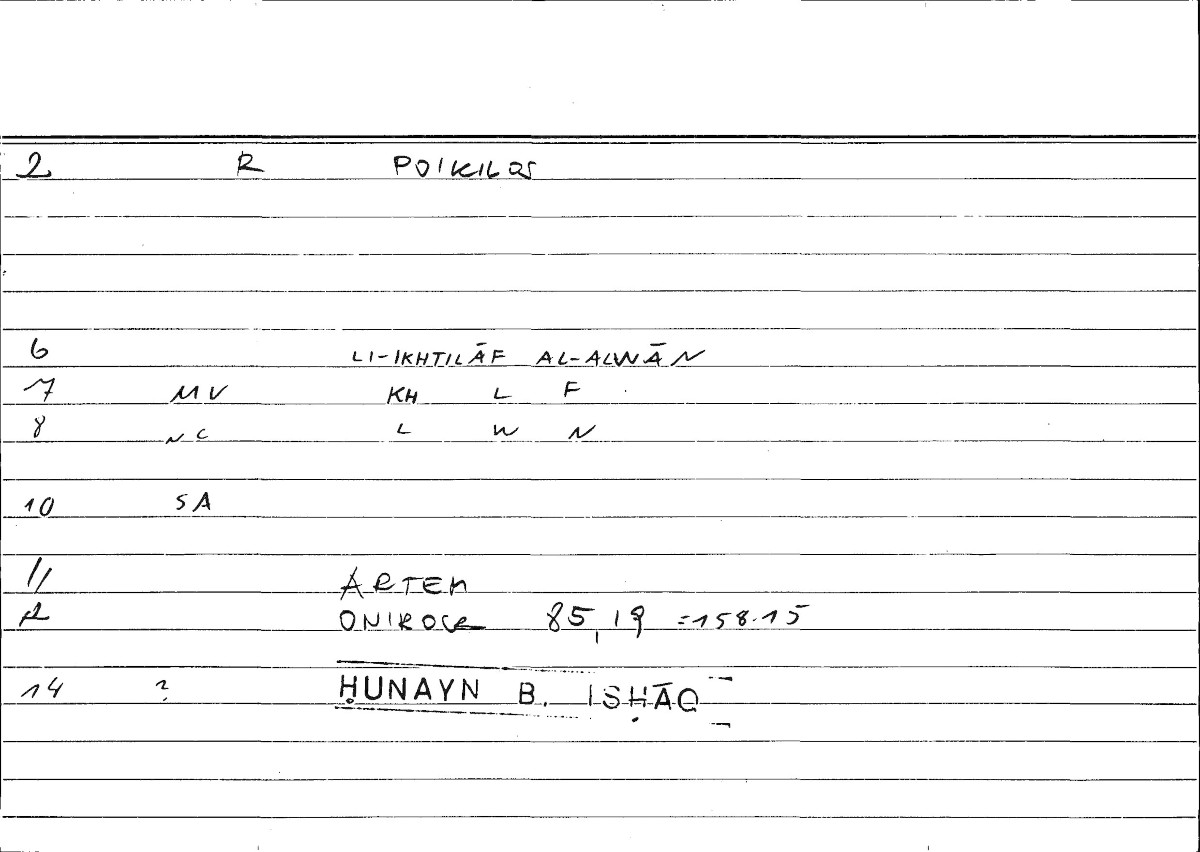 2 R POIKILOS
6 LI-IKHTILĀF AL-ALWĀN
7 MV KH L F
8 NC L W N
10 SA
11 ARTEM
12 ONIROCR 85,19 =158.15
14 ? ḤUNAYN B. ISḤĀQ